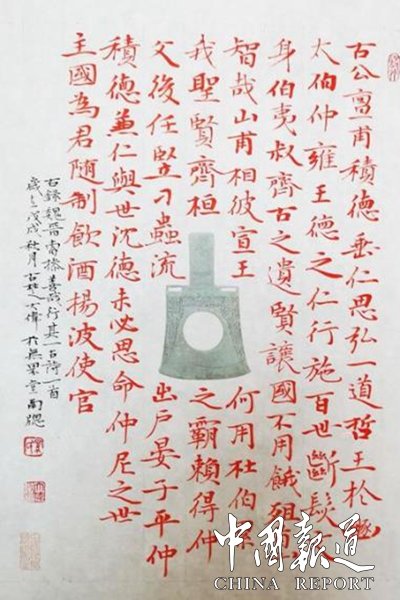 古公亶甫積德垂仁思弘一道哲王於豳
太伯仲雍王德之仁行施百世斷髮文
身伯夷叔齊古之遺賢讓國不用餓殂首
智哉山甫相彼宣王 何用杜伯累
我聖賢齊桓 之霸賴得仲
父後任竪刁蟲流 出戶晏子平仲
積德兼仁與世沉德未必思命仲尼之世
主國為君隨制飲酒楊波使官
右錄魏晉曹操善哉行其一古詩一首
歲在戊戌秋月古楚大偉於無果堂南窗
中國報道
CHINA REPORT